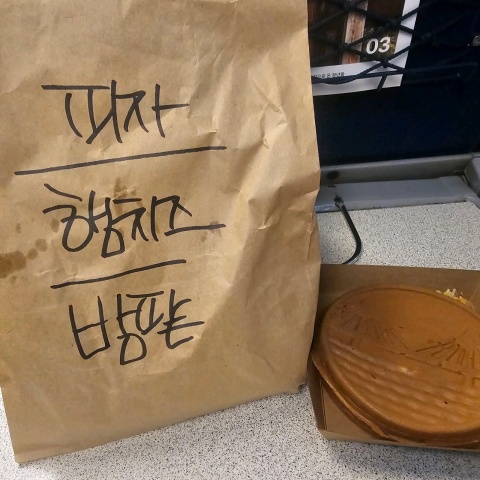 피자
햄치즈
방팥
03